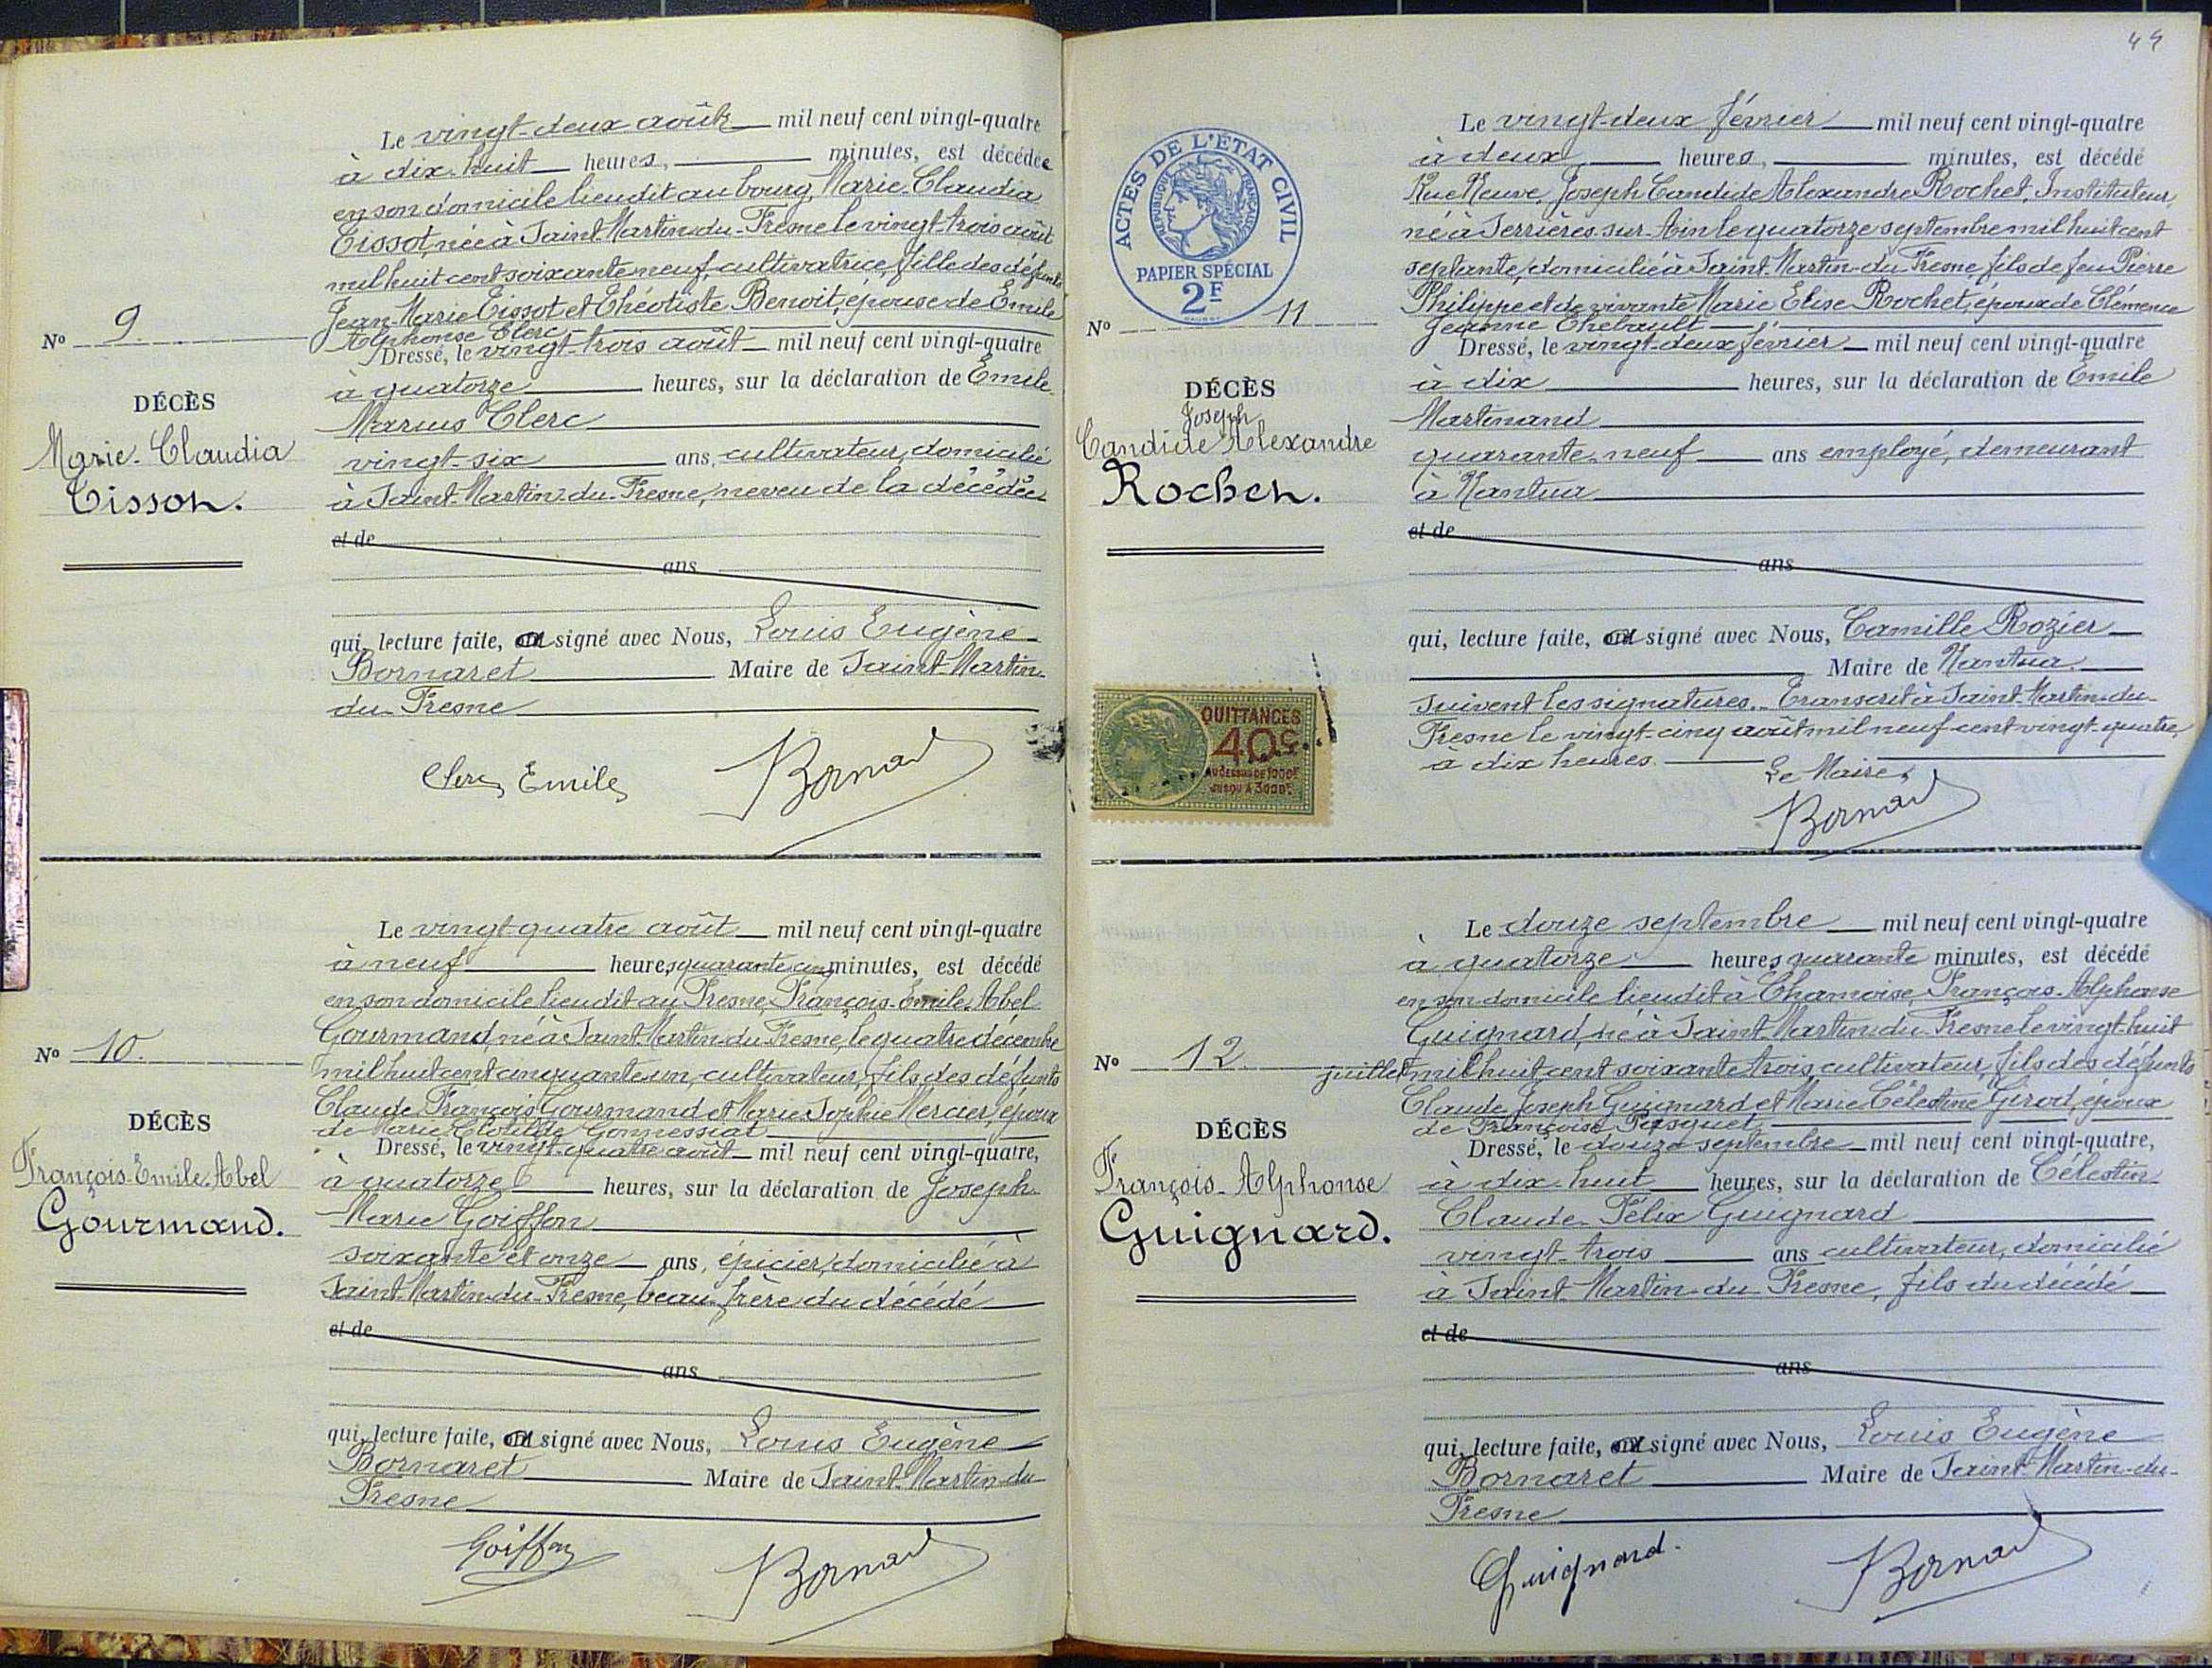 Le vingt-deux août mil neuf cent vingt-quatre
à dix-huit heures, minutes, est décédée
en son domicile lieudit au bourg, Marie-Claudia
Tissot, née à Saint-Martin-du-Fresne le vingt-trois août
mil huit cent soixante neuf, cultivatrice, fille des défunts
Jean-Marie Tissot et Théotiste Benoit, épouse de Emile
Alphonse Clerc
Nº 9.
DÉCÈS
Marie-Claudia
Tissot.
Dressé, le vingt-trois août mil neuf cent vingt-quatre
à quatorze heures, sur la déclaration de Emile
Marius Clerc
vingt-six ans, cultivateur, domicilié
à Saint-Martin-du-Fresne, neveu de la décédée
et de
ans
qui, lecture faite, a signé avec Nous, Louis Eugène
Bornaret Maire de Saint-Martin-
du-Fresne
Clerc Emile Bornaret
Le vingt-quatre août mil neuf cent vingt-quatre
à neuf heures quarante cinq minutes, est décédé
en son domicile lieudit au Fresne, François-Emile-Abel
Gourmand, né à Saint-Martin-du-Fresne, le quatre décembre
mil huit cent cinquante un, cultivateur, fils des défunts
Claude François Gourmand et Marie Sophie Mercier, époux
de Marie Clotilde Gonnessiat
Nº 10.
DÉCÈS
François-Emile-Abel
Gourmand.
Dressé, le vingt-quatre août mil neuf cent vingt-quatre,
à quatorze heures, sur la déclaration de Joseph
Marie Goiffon
soixante et onze ans, épicier, domicilié à
Saint-Martin-du-Fresne, beau-frère du décédé
et de
ans
qui, lecture faite, a signé avec Nous, Louis Eugène
Bornaret Maire de Saint-Martin-du-
Fresne
Goiffon Bornaret
44
ACTES DE L'ÉTAT CIVIL
RÉPUBLIQUE FRANÇAISE
PAPIER SPÉCIAL
2F
Le vingt-deux février mil neuf cent vingt-quatre
à deux heures, minutes, est décédé
Rue Neuve, Joseph Candide Alexandre Rochet, Instituteur,
né à Serrières-sur-Ain le quatorze septembre mil huit cent
septante, domicilié à Saint-Martin-du-Fresne, fils de feu Pierre
Philippe et de vivante Marie Elise Rochet, époux de Clémence
Jeanne Thebault
Nº 11
DÉCÈS
Joseph
Candide Alexandre
Rochet.
Dressé, le vingt-deux février mil neuf cent vingt-quatre
à dix heures, sur la déclaration de Emile
Martinand
quarante-neuf ans employé, demeurant
à Nantua
et de
ans
qui, lecture faite, a signé avec Nous, Camille Rozier
Maire de Nantua.
Suivent les signatures. Transcrit à Saint-Martin-du-
Fresne le vingt-cinq août mil neuf cent vingt-quatre,
à dix heures. Le Maire,
Bornaret
QUITTANCES
40c
AU DESSUS DE 1000F
JUSQU'À 3000F
Le douze septembre mil neuf cent vingt-quatre
à quatorze heures quarante minutes, est décédé
en son domicile lieudit à Chamoise, François-Alphonse
Guignard, né à Saint-Martin-du-Fresne le vingt-huit
juillet mil huit cent soixante trois, cultivateur, fils des défunts
Claude Joseph Guignard et Marie Célestine Girod, époux
de Françoise Pasquet
Nº 12
DÉCÈS
François-Alphonse
Guignard.
Dressé, le douze septembre mil neuf cent vingt-quatre,
à dix-huit heures, sur la déclaration de Célestin
Claude-Félix Guignard
vingt-trois ans cultivateur, domicilié
à Saint-Martin-du-Fresne, fils du décédé
et de
ans
qui, lecture faite, a signé avec Nous, Louis Eugène
Bornaret Maire de Saint-Martin-du-
Fresne
Guignard. Bornaret